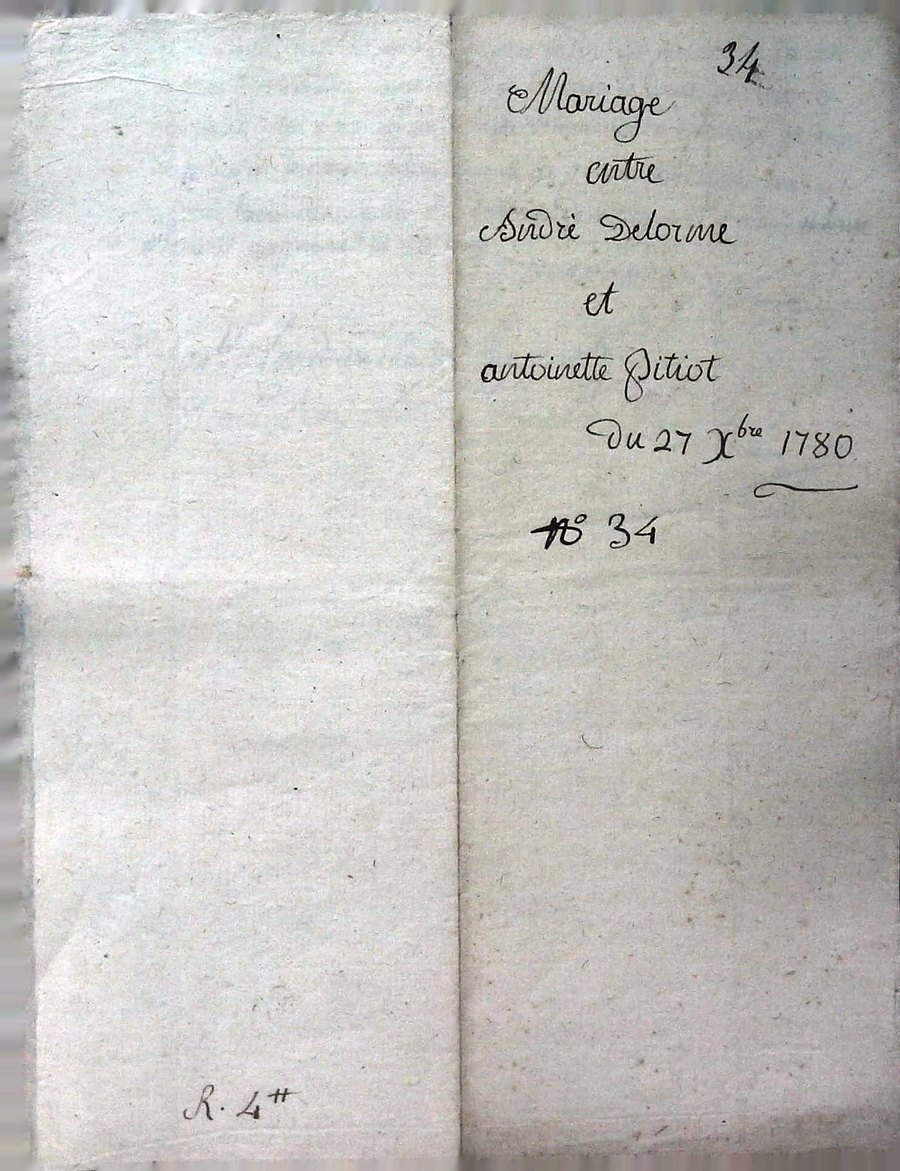 34
Mariage
entre
Andrè Delorme
et
antoinette Pitiot
Du 27 Xbre 1780
n° 34
R. 4#